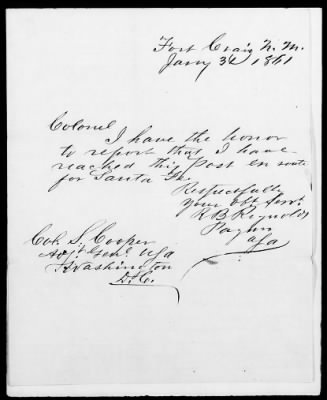 Fort Craig N. M.
Jany 3d 1861
Colonel
I have the honor
to report that I have
reached this Post en route
for Santa Fe.
Respectfully
your obt Servt
R B Reynolds
Paymr
USA
Col. S. Cooper
Adjt Genl. USA
Washington
D. C.